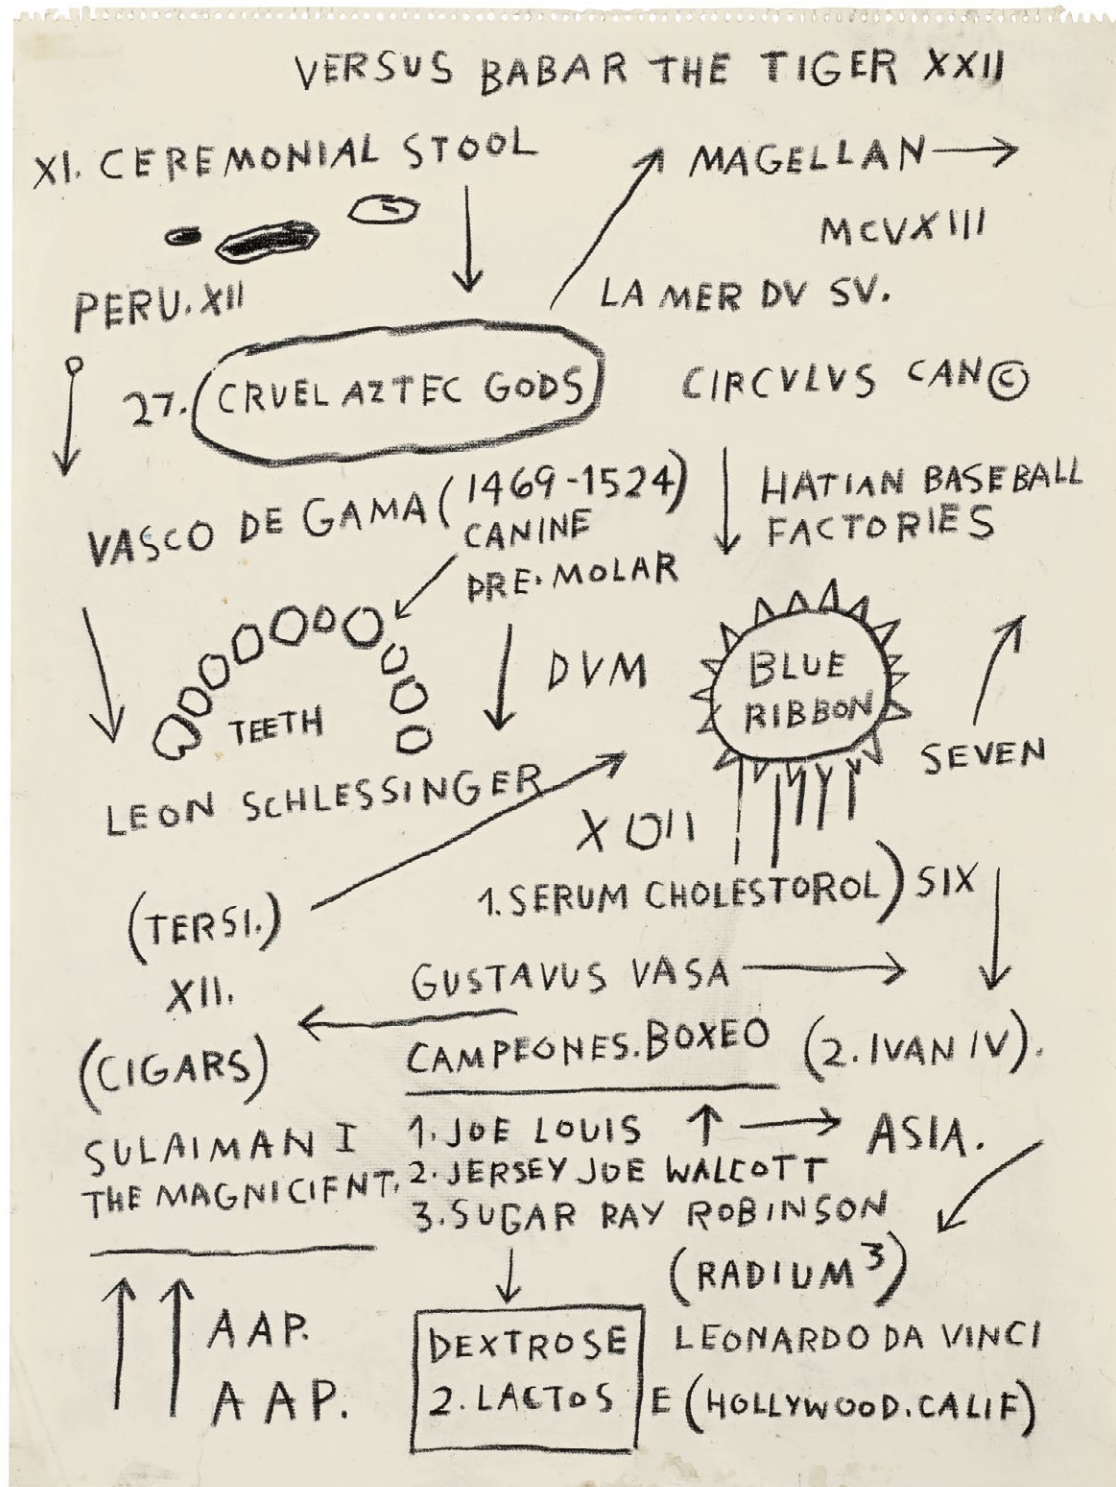 VERSUS BABAR THE TIGER XXII
XI. CEREMONIAL STOOL
MAGELLAN
MCVXIII
PERU. XII
LA MER DV SV.
27. CRUEL AZTEC GODS
CIRCVLVS CAN©
VASCO DE GAMA (1469-1524)
HATIAN BASEBALL
FACTORIES
CANINE
PRE. MOLAR
DVM
BLUE
RIBBON
TEETH
SEVEN
LEON SCHLESSINGER
X O11
1. SERUM CHOLESTOROL) SIX
(TERSI.)
XII.
GUSTAVUS VASA
(CIGARS)
CAMPEONES. BOXEO
(2. IVAN IV).
SULAIMAN I
THE MAGNICIFNT.
1. JOE LOUIS
ASIA.
2. JERSEY JOE WALCOTT
3. SUGAR RAY ROBINSON
(RADIUM³)
AAP.
AAP.
DEXTROSE
2. LACTOSE
LEONARDO DA VINCI
(HOLLYWOOD. CALIF)